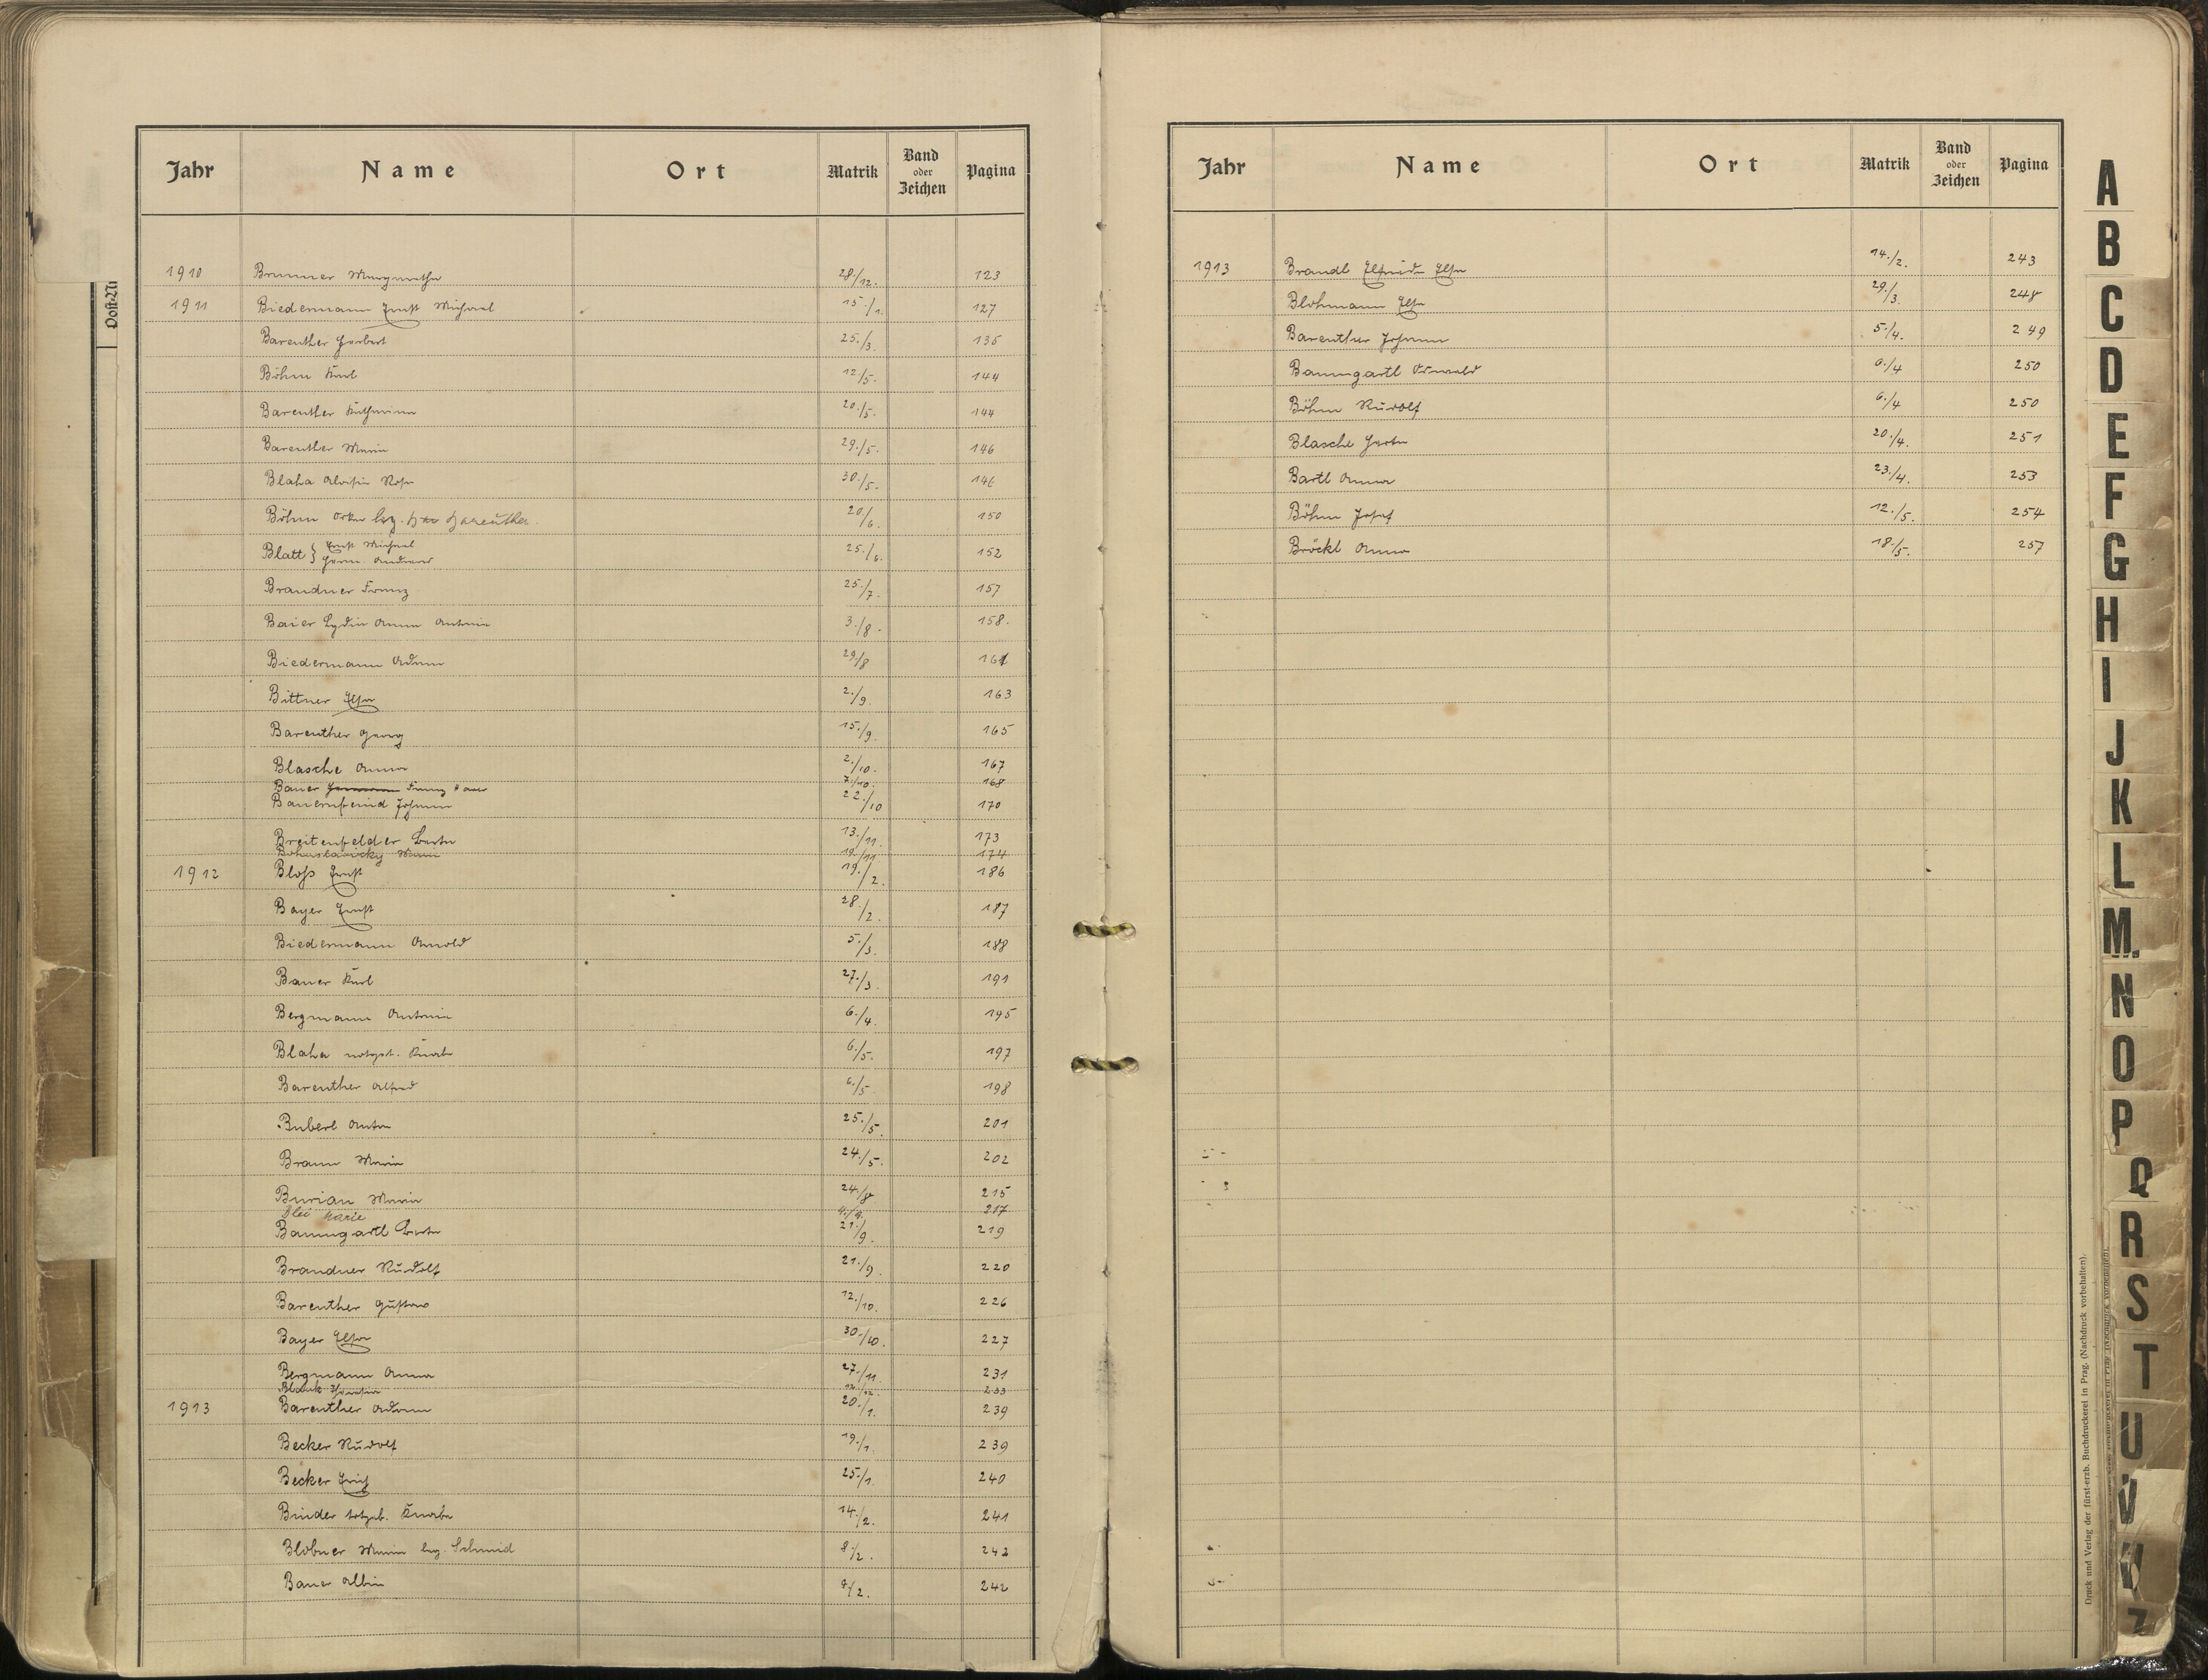 Jahr Name Ort Matrik Band oder Zeichen Pagina
1910 Brunner Margaretha 28./12. 123
1911 Biedermann Ernst Michael 15./1. 127
Bareuther Herbert 25./3. 135
Böhm Karl 12./5. 144
Bareuther Katharina 20./5. 144
Bareuther Maria 29./5. 146
Blaha Aloisia Rosa 30./5. 146
Böhm leg. Bareuther 20./6. 150
Blatt { Ernst Michael 25./6. 152
Herm. Andreas
Brandner Franz 25./7. 157
Baier Lydia Anna Antonia 3./8. 158.
Biedermann Adam 29/8 161
Bittner Elsa 2./9. 163
Bareuther Georg 15./9. 165
Blasche Anna 2./10. 167
Bauer Franz 7./10. 168
Bauernfeind Johann 22./10 170
Breitenfelder Berta 13./11. 173
Bohuslavicky Maria 19./11 174
1912 Bloß Ernst 19./2. 186
Bayer Ernst 28./2. 187
Biedermann Arnold 5./3. 188
Bauer Karl 27./3. 191
Bergmann Antonia 6./4. 195
Blaha notget. Knabe 6./5. 197
Bareuther Alfred 6./5. 198
Buberl Anton 25./5. 201
Braun Maria 24./5. 202
Burian Maria 24./8 215
Blei Marie 4./9. 217
Baumgartl Berta 21./9. 219
Brandner Rudolf 21./9. 220
Bareuther Gustav 12./10. 226
Bayer Elsa 30./10. 227
Bergmann Anna 27./11. 231
Blank 233
1913 Bareuther Adam 20./1. 239
Becker Rudolf 19./1. 239
Becker Erich 25./1. 240
Binder totgeb. Knabe 14./2. 241
Blobner Maria leg. Schmid 8./2. 242
Bauer Albin 9/2. 242
Jahr Name Ort Matrik Band oder Zeichen Pagina
1913 Brandl Elfriede Elsa 14./2. 243
Blohmann Elsa 29./3. 248
Bareuther Johann 5./4. 249
Baumgartl Oswald 6./4 250
Böhm Rudolf 6./4 250
Blasche Herta 20./4. 251
Bartl Anna 23./4. 253
Böhm Josef 12./5. 254
Bröckl Anna 18./5. 257
Druck und Verlag der fürst-erzb. Buchdruckerei in Prag. (Nachdruck vorbehalten).
A
B
C
D
E
F
G
H
I
J
K
L
M
N
O
P
Q
R
S
T
U
V
W
Z